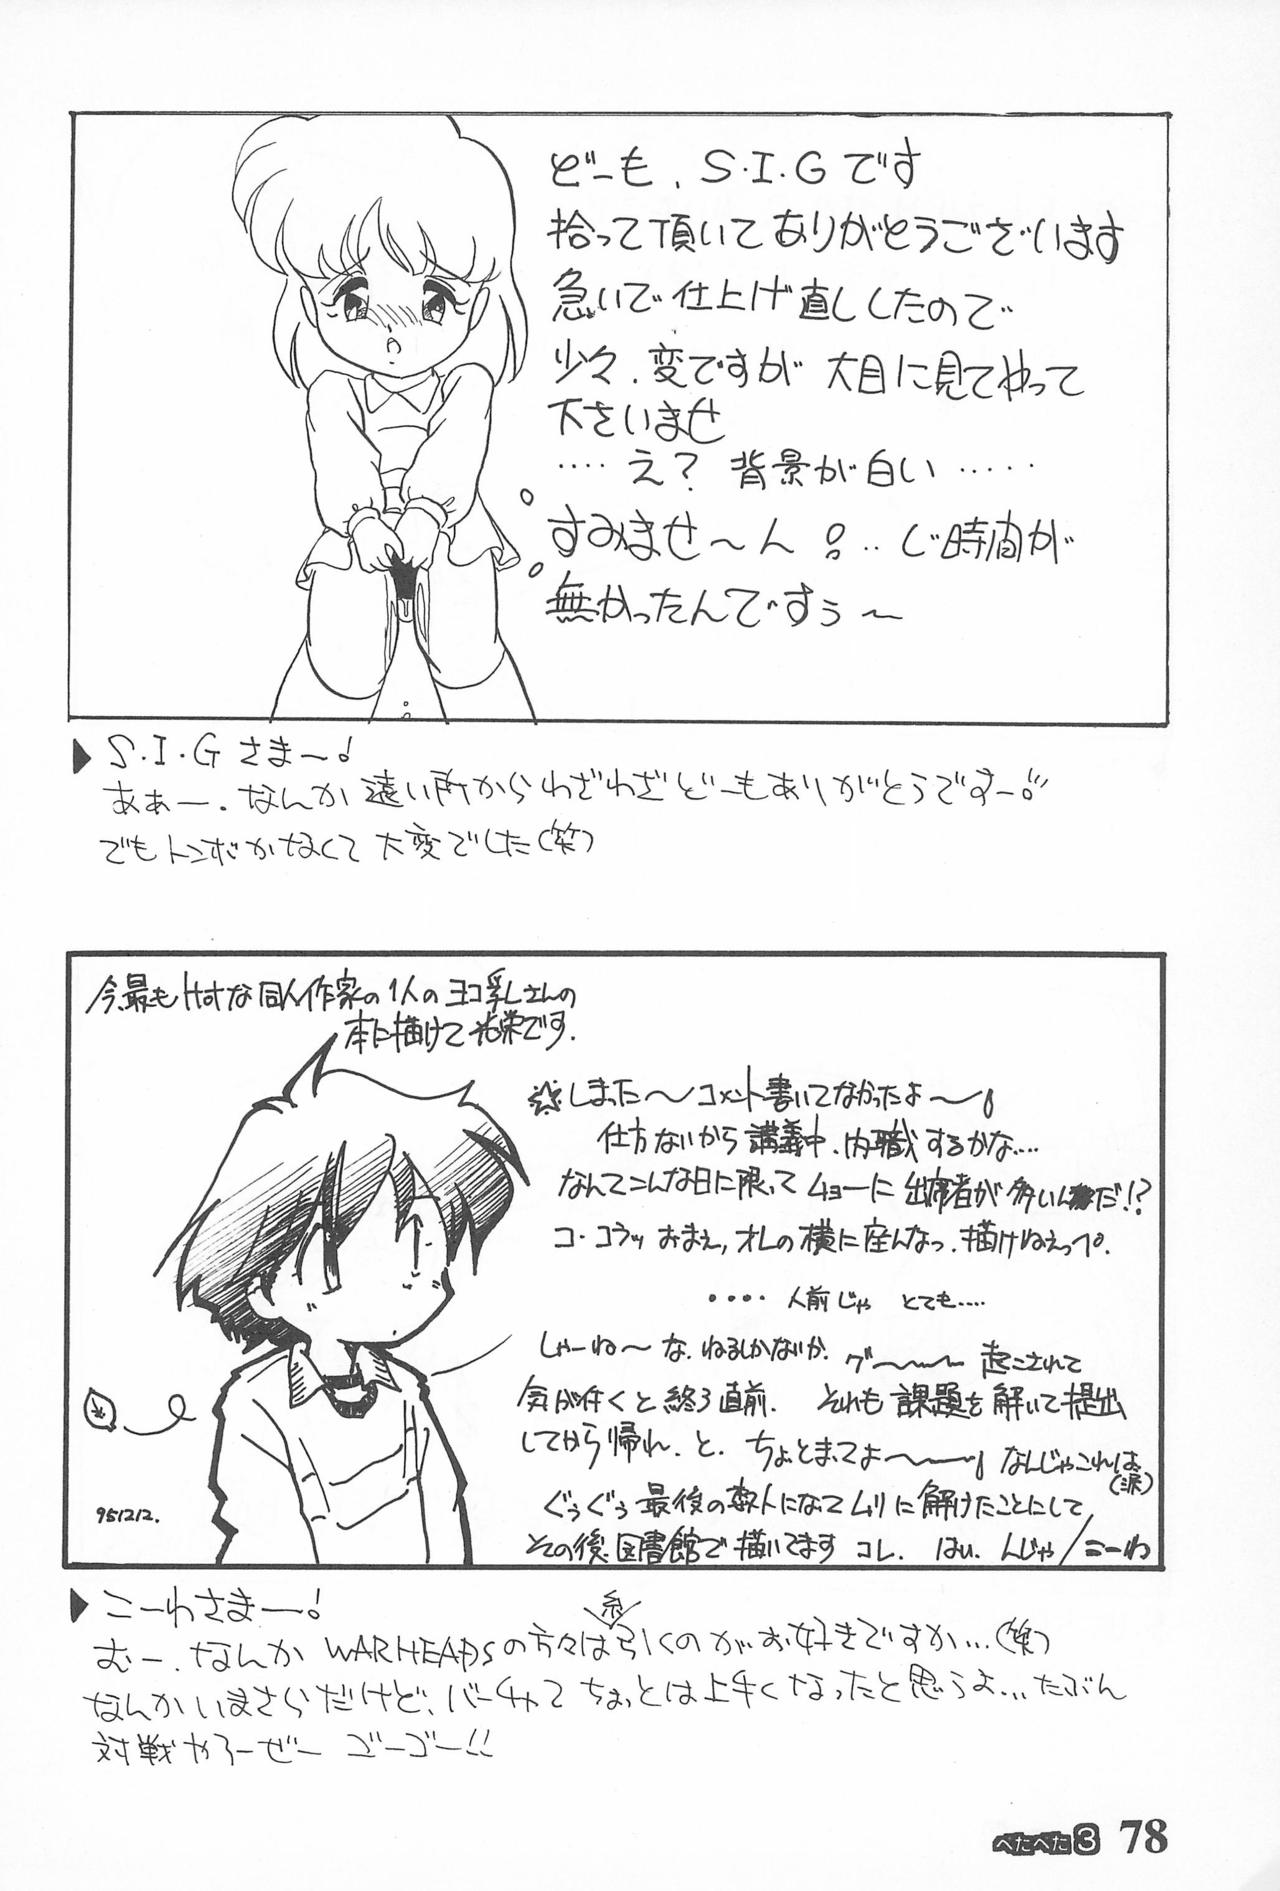 どーも、S・I・Gです
拾って頂いてありがとうございます
急いで仕上げ直ししたので
少々、変ですが大目に見てやって
下さいませ
‥‥え？背景が白い‥‥‥
すみませ〜ん！‥じ時間が
無かったんですぅ〜
▶S・I・Gさま〜！
あぁー、なんか遠い所からわざわざどーもありがとうですー！
でもトンボがなくて大変でした（笑）
今、最もHotな同人作家の1人のヨコ乳さんの
本に描けて光栄です.
☆しまった〜コメント書いてなかったよ〜!
仕方ないから講義中、内職するかな….
なんてこんな日に限ってムョーに出席者が多いんだ!?
コ・コラッおまえ、オレの横に座んなっ、描けねえっぺ.
‥‥人前じゃとても….
しゃーね〜な、ねるしかないか. グ〜〜 起こされて
気が付くと終了直前. それも課題を解いて提出
してから帰れ、と. ちょとまてよ〜〜! なんじゃこれは(涙)
ぐぅぐぅ最後の数人になってムリに解けたことにして
その後、図書館で描いてます コレ. はい. んじゃ／こーわ
951212.
▶こーわさまー！
むー、なんかWARHEADSの方々は糸引くのがお好きですか…（笑）
なんかいまさらだけど、バーチャてちょっとは上手くなったと思うよ…たぶん
対戦やろーぜー ゴーゴー!!
ぺたぺた3 78